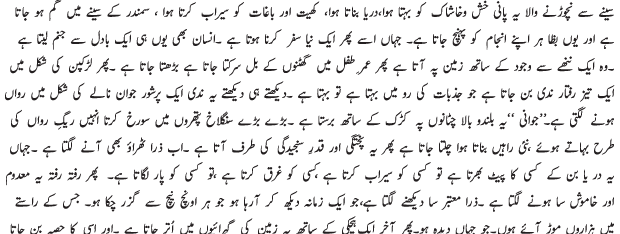 سینے سے نچوڑنے والا یہ پانی خس وخاشاک کو بہتا ہوا،دریا بناتا ہوا، کھیت اور باغات کو سیراب کرتا ہوا ، سمندر کے سینے میں گم ہو جاتا
ہے اور یوں بظا ہر اپنے انجام کو پہنچ جاتا ہے۔ جہاں اسے پھر ایک نیا سفر کرنا ہوتا ہے ۔انسان بھی یوں ہی ایک بادل سے جنم لیتا ہے
۔وہ ایک ننھے سے وجود کے ساتھ زمین پہ آتا ہے پھر عمرِ طفل میں گھٹنوں کے بل سرکتا جاتا ہے بڑھتا جاتا ہے ۔پھر لڑکپن کی شکل میں
ایک تیز رفتار ندی بن جاتا ہے جو جذبات کی رو میں بہتا ہے تو بہتا ہے ۔دیکھتے ہی دیکھتے یہ ندی ایک پرشور جوان نالے کی شکل میں رواں
ہونے لگتی ہے۔’’جوانی ‘‘یہ بلندو بالا چٹانوں پہ کڑک کے ساتھ برستا ہے ۔بڑے بڑے سنگلاخ پتھروں میں سورخ کرتا انہیں ریگِ رواں کی
طرح بہاتے ہوئے نئی راہیں بناتا ہوا چلتا جاتا ہے پھر یہ پختگی اور قدرِ سنجیدگی کی طرف آتا ہے ۔اب ذرا ٹھراؤ بھی آنے لگتا ہے ۔جہاں
یہ در یا بن کے کسی کا پیٹ بھرتا ہے تو کسی کو سیراب کرتا ہے ،کسی کو غرق کرتا ہے ،تو کسی کو پار لگاتا ہے۔ پھر رفتہ رفتہ یہ معدوم
اور خاموش سا ہونے لگتا ہے ۔ذرا معتبر سا دیکھنے لگتا ہے،جو ایک زمانہ دیکھ کر آرہا ہو جو ہر اونچ نیچ سے گزر چکا ہو۔ جس کے راستے
میں ہزاروں موڑ آئے ہوں۔جو جہاں دیدہ ہو۔پھر آخر ایک ہچکی کے ساتھ یہ زمین کی گھرائیوں میں اُتر جاتا ہے ۔اور اسی کا حصہ بن جاتا